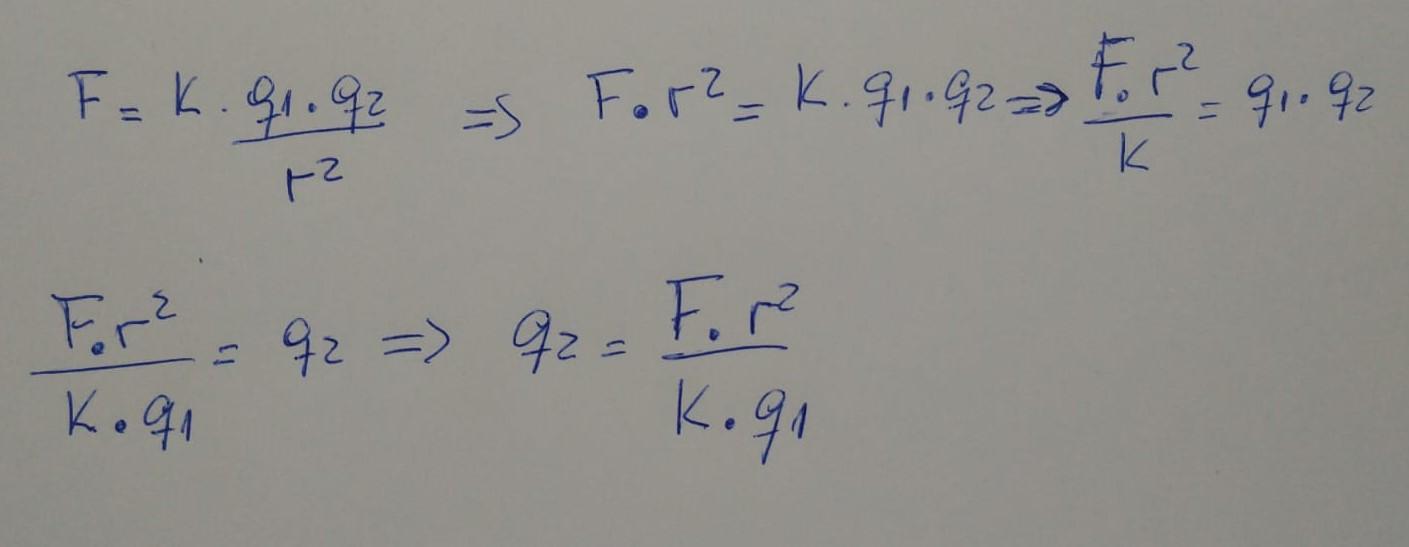 F = K · q₁ · q₂ / r² => F · r² = K · q₁ · q₂ => F · r² / K = q₁ · q₂
F · r² / K · q₁ = q₂ => q₂ = F · r² / K · q₁